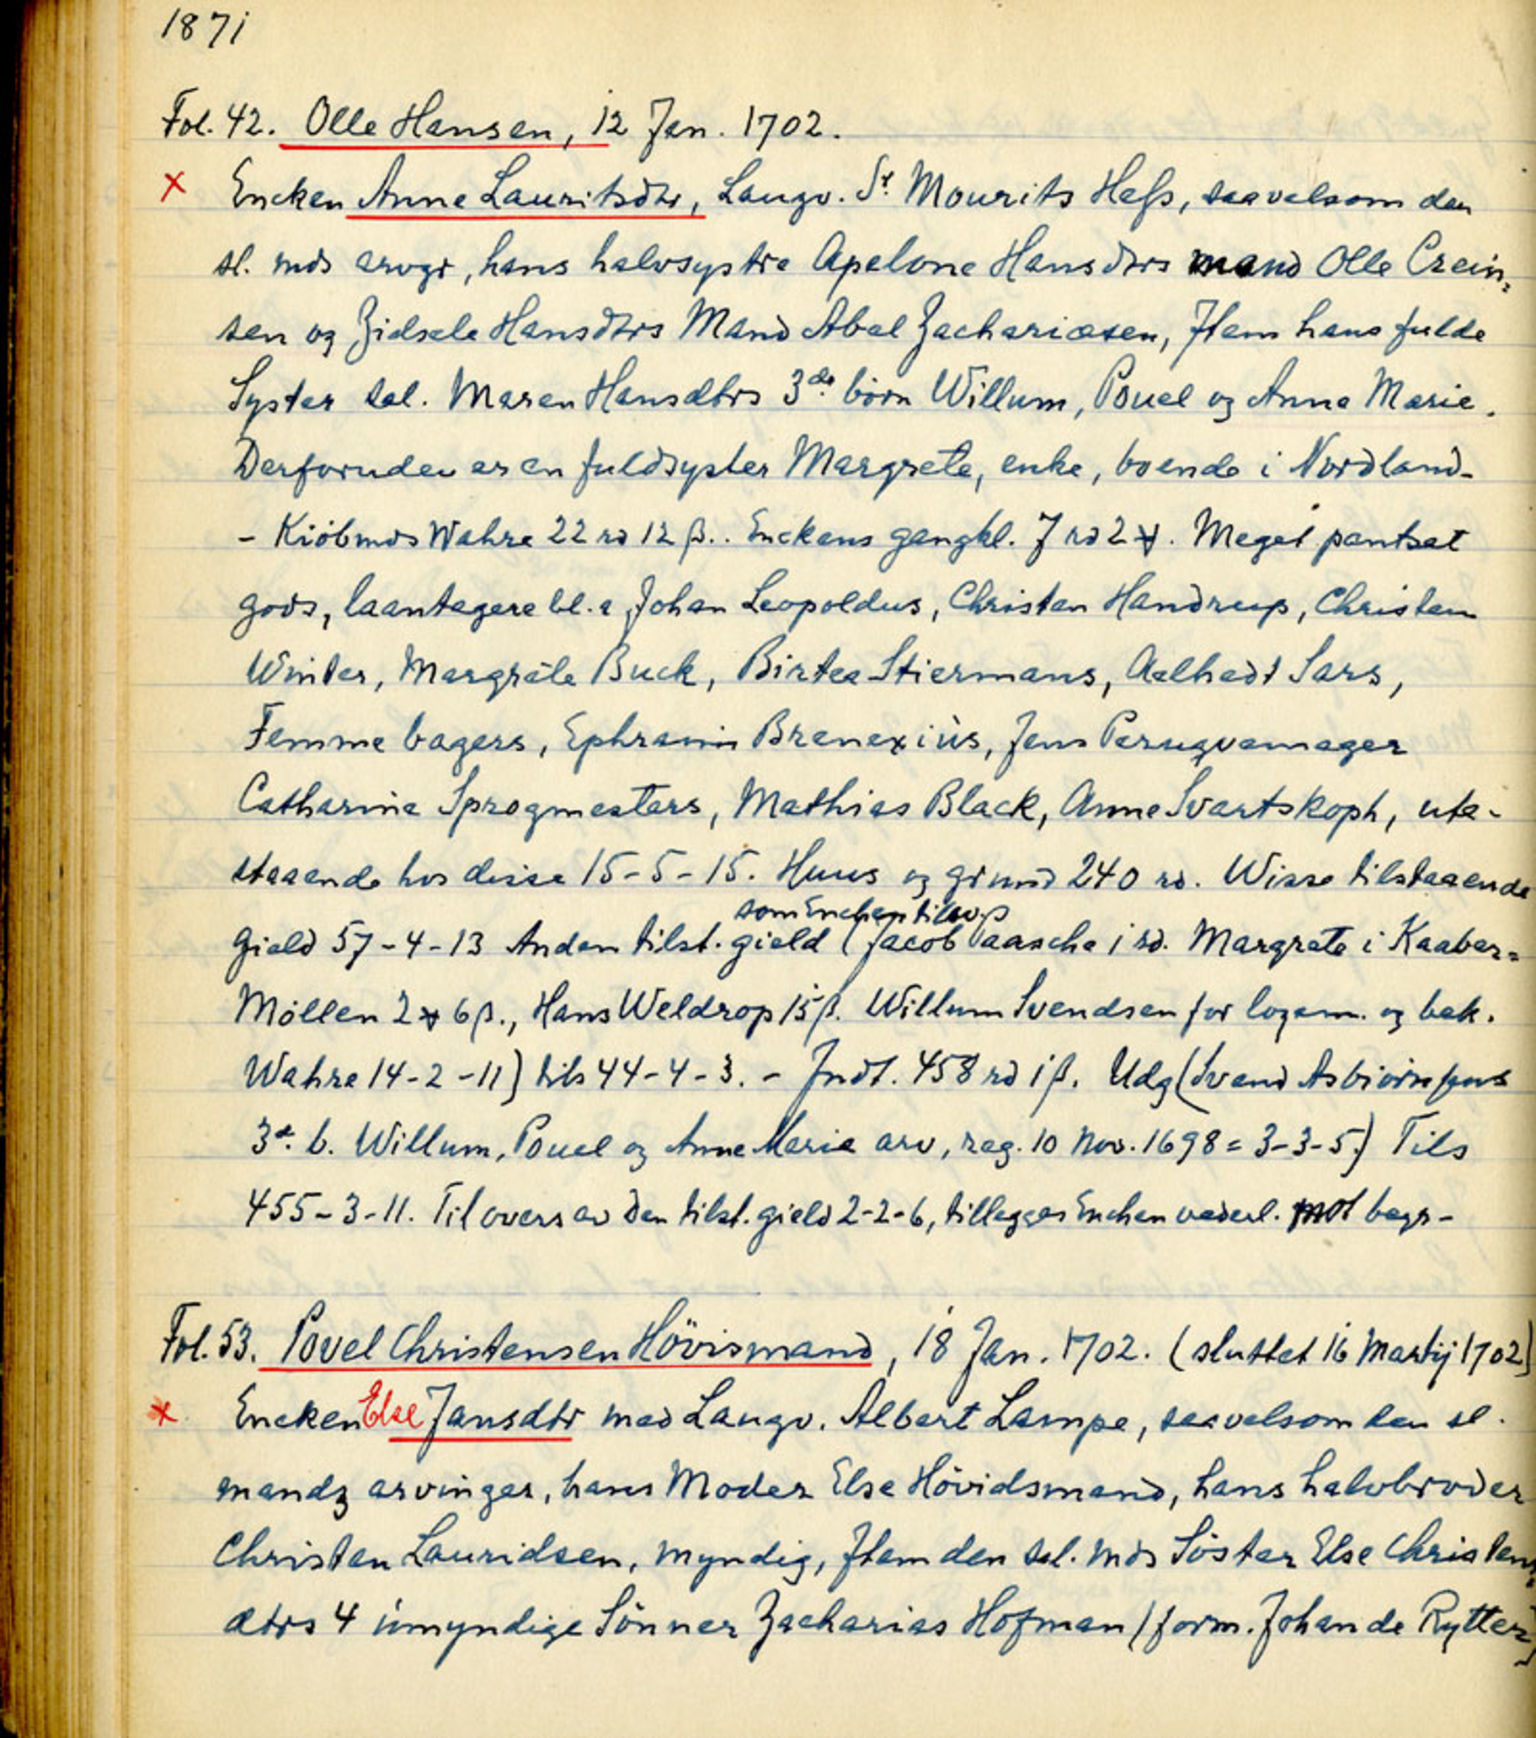 1871
Fol. 42. Olle Hansen, 12 Jan. 1702.
x Encken Anne Lauritsdtr, Laugv. Sr. Mourits Hess, saavelsom den
sl. mds arvgr, hans halvsystre Apelone Hansdtrs mand Olle Crein=
sen og Zidsele Hansdtrs Mand Abel Zachariæsen, Item hans fulde
Syster sal. Maren Hansdtrs 3de børn Willum, Pouel og Anne Marie.
Derforuden er en fuldsyster Margrete, enke, boende i Nordland-
- Kiöbmds Wahre 22 rd 12 β.. Enckens gangkl. 7 rd 2 ꝟ. Meget pantsat
gods, laantagere bl.a Johan Leopoldus, Christen Handrup, Christen
Winter, Margräte Buck, Birtea Stiermans, Aelhedt Sars,
Femme bagers, Ephraim Brenexius, Jens Peruqvemager
Catharine Sprogmesters, Mathias Black, Anne Svartskoph, ute-
staaende hos disse 15-5-15. Huus og grund 240 rd. Wisse tilstaaende
som Enchen tilsvß
Gield 57-4-13 Anden tilst. gield (Jacob Paasche 1 rd. Margrete i Kaaber=
Möllen 2 ꝟ 6 β., Hans Weldrop 15 β. Willum Svendsen for logem. og bek.
Wahre 14-2-11) tils 44-4-3. - Indt. 458 rd 1 β. Udg (Svend Asbiörnsens
3de b. Willum, Pouel og Anne Marie arv, reg. 10 Nov. 1698 = 3-3-5) Tils
455-3-11. Til overs av den tilst. gield 2-2-6, tillegges Enchen vederl. mot begr-
Fol. 53. Povel Christensen Hövismand, 18 Jan. 1702. (sluttet 16 Martij 1702)
x Encken Else Jansdtr med Laugv. Albert Lampe, saavelsom den sl.
mandz arvinger, hans Moder Else Hövidsmand, hans halvbroder
Christen Lauridsen, myndig, Item den sal. mds Söster Else Christens
dtrs 4 umyndige Sönner Zacharias Hofman (form. Johan de Rytter)